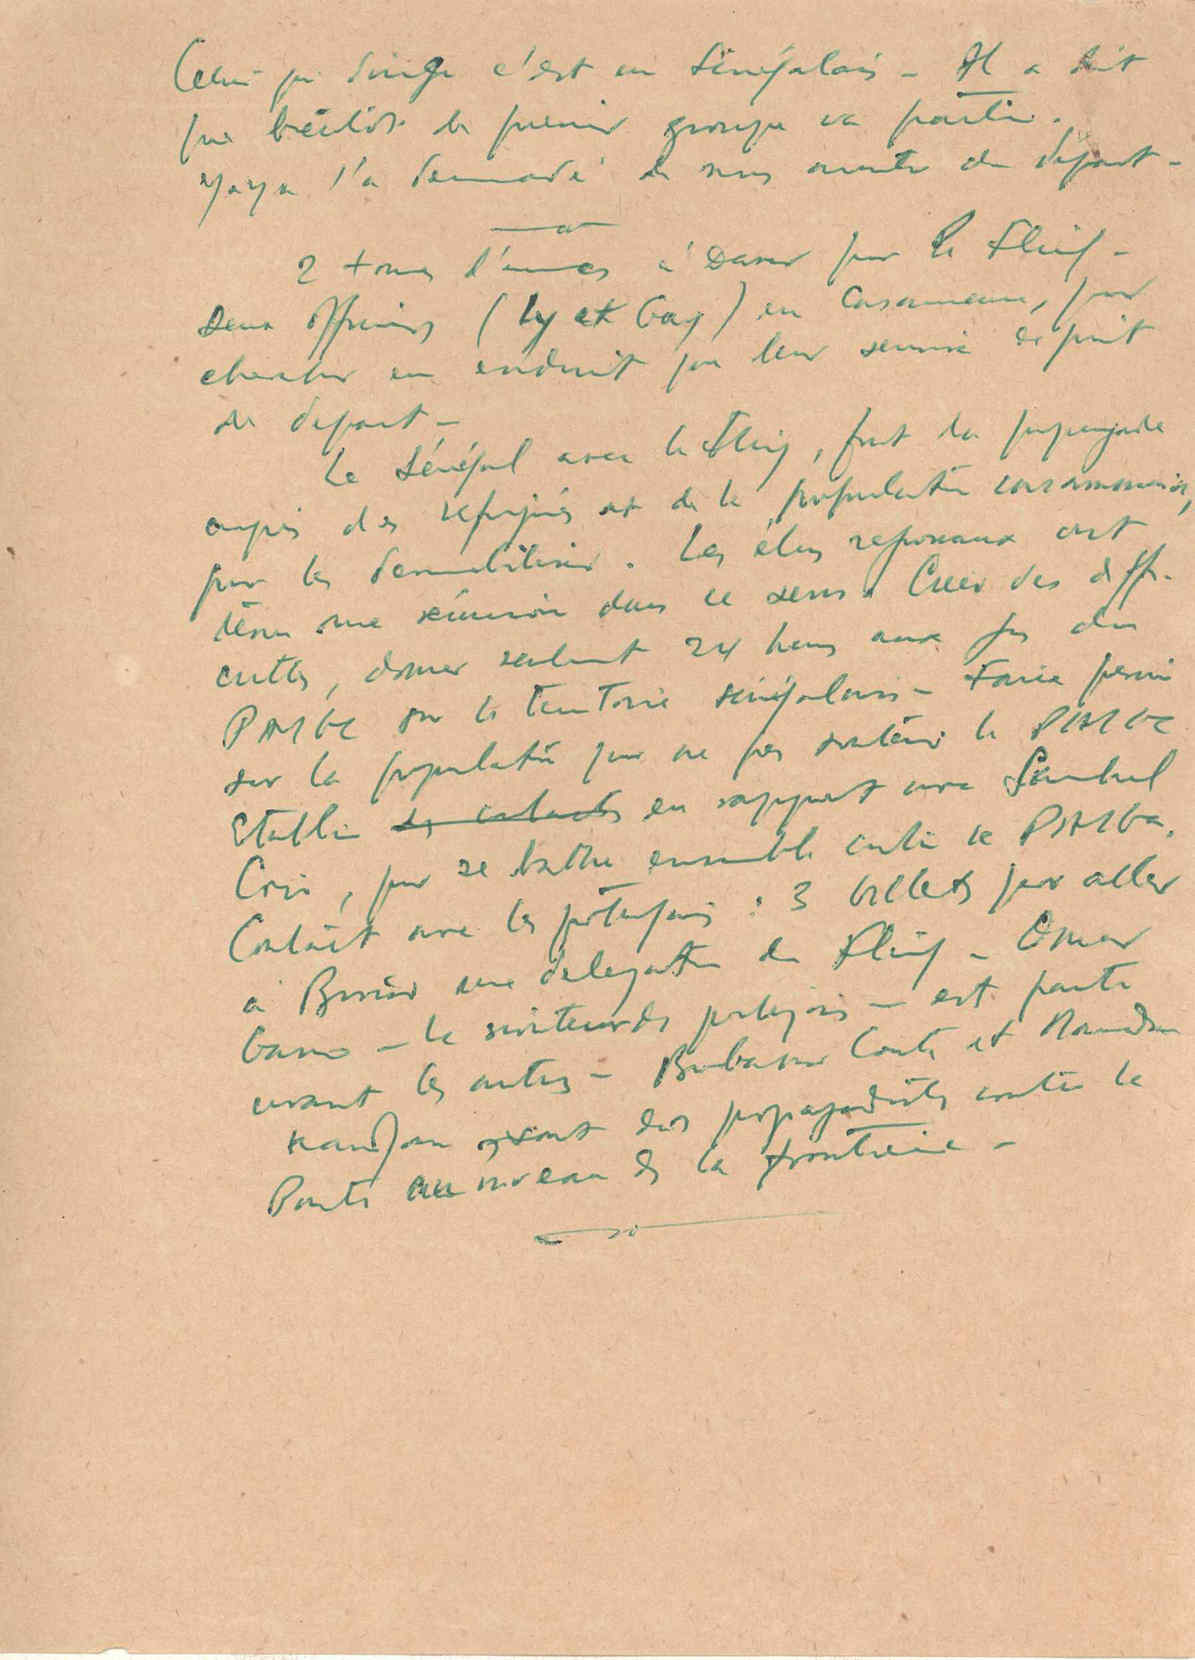 Celui qui dirige c'est un Sénégalais - Il a dit
que bientôt le premier groupe va partir.
Yaya l'a demandé de nous avertir du départ -
2 tonnes d'armes à Dakar pour le Fling -
Deux officiers (Ly et Gay) en Casamance, pour
chercher un endroit pour leur servir de point
de départ -
Le Sénégal avec le Fling, fait la propagande
auprès des réfugiés et de la population casamançaise,
pour les démobiliser. Les élus régionaux ont
tenu une réunion dans ce sens. Créer des diffi-
cultés, donner seulement 24 heures aux gs du
PAIGC sur le territoire sénégalais - Faire pression
sur la population pour ne pas soutenir le PAIGC
Etablir des contacts en rapport avec
, pour se battre ensemble contre le PAIGC.
Contact avec les portugais : 3 billets pour aller
à Bissau une délégation du Fling - Omar
- le serviteur des portugais - est parti
avant les autres - Bubacar Conté et Mamadu
font des propagandistes contre le
Parti au niveau de la frontière -